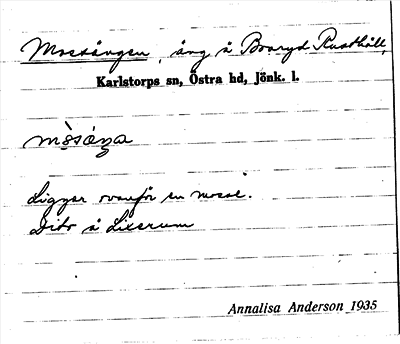 Mossängen, äng å Boaryd Rusthåll,
Karlstorps sn, Östra hd, Jönk. l.
Ligger ovanför en mosse.
Dito å Lixerum
Annalisa Anderson 1935